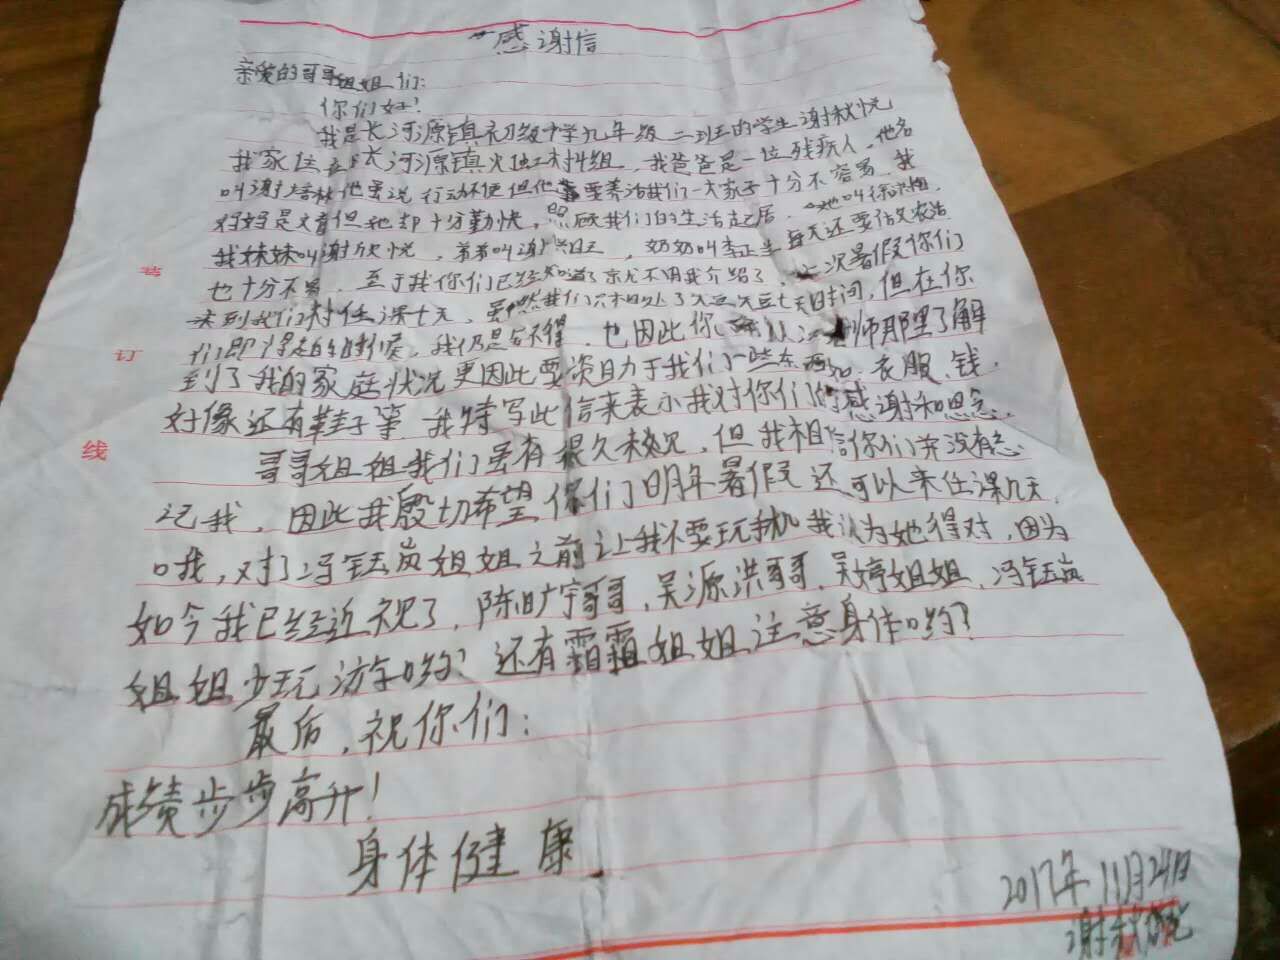 感谢信
亲爱的哥哥姐姐们:
你们好!
我是长河源镇初级中学九年级二班的学生谢秋悦
我家住在长河源镇火地村组,我爸爸是一位残疾人,他名
叫谢培林他虽说行动不便但他要养活我们一大家子十分不容易,我
妈妈是文盲但她却十分勤快,照顾我们的生活起居,她叫徐
我妹妹叫谢欣悦,弟弟叫谢,奶奶叫李正每天还要做农活
也十分不易,至于我你们已经知道了就不用我介绍了,这次暑假你们
来到我们村任课七天,虽然我们只相处了短短七天时间,但在你
们即将走的时候,我仍是舍不得,也因此你们从老师那里了解
到了我的家庭状况更因此要资助于我们一些东西如:衣服、钱,
好像还有鞋子等,我特写此信来表示我对你们的感谢和思念.
哥哥姐姐我们虽有很久未见,但我相信你们并没有忘
记我,因此我殷切希望你们明年暑假还可以来任课几天,
哦,对了冯钰岚姐姐之前让我不要玩手机我认为她得对,因为
如今我已经近视了,陈旷宇哥哥,吴源洪哥哥,吴婷姐姐,冯钰岚
姐姐少玩游字哟?还有霜霜姐姐注意身体哟?
最后,祝你们:
成绩步步高升!
身体健康
2017年11月24日
谢秋悦
装
订
线